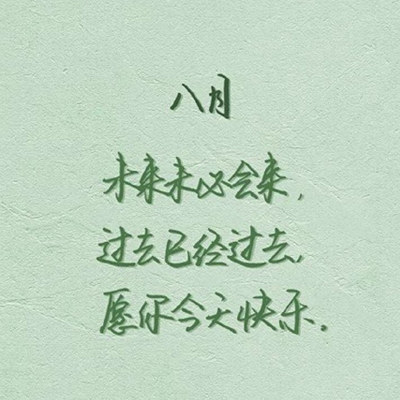 八月
未来未必会来,
过去已经过去,
愿你今天快乐.